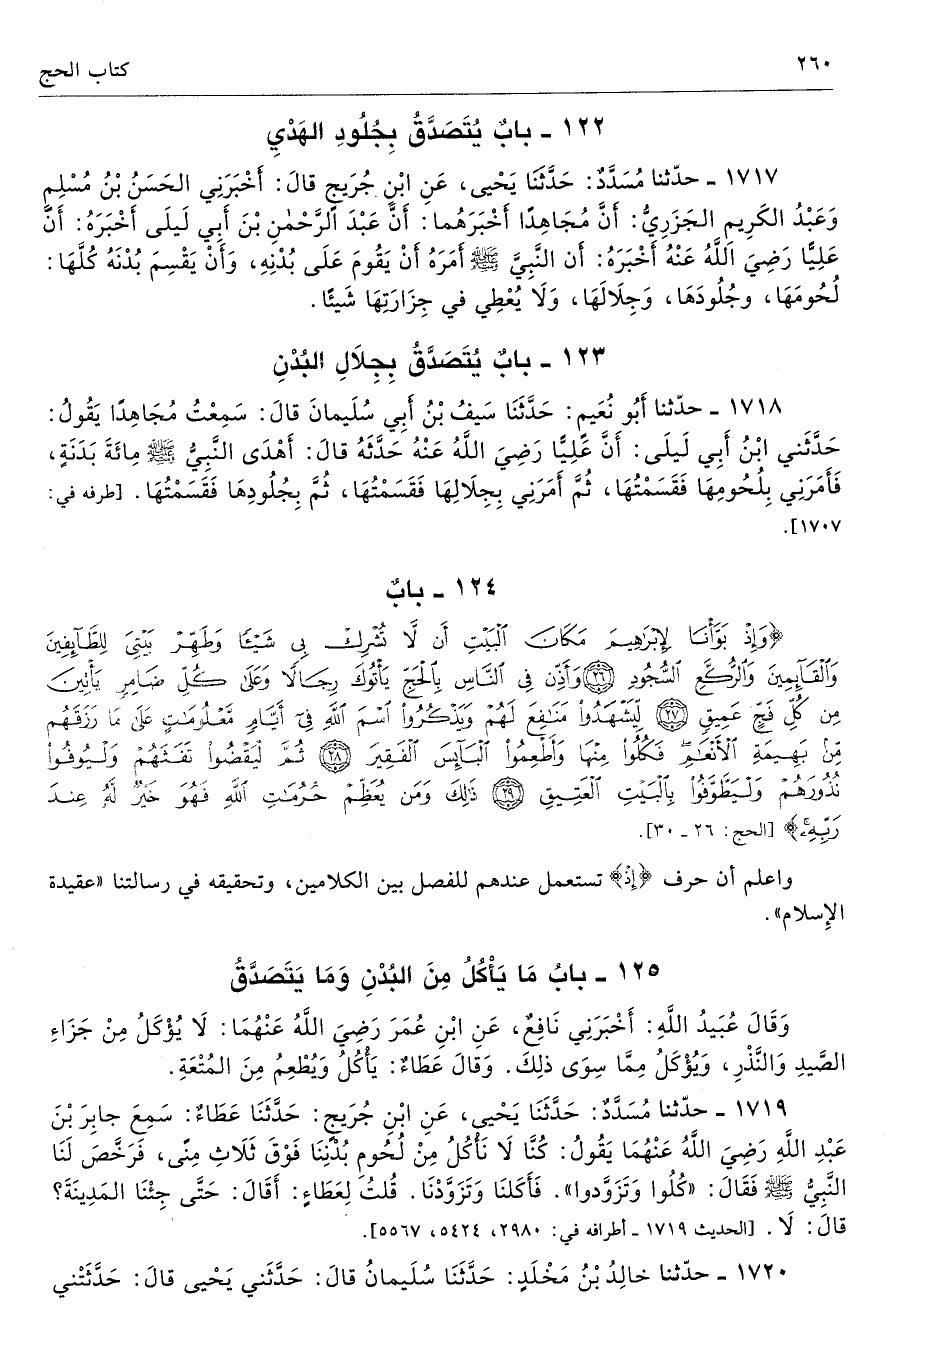 ٢٦٠
كتاب الحج
١٢٢ ـ بابٌ يُتَصَدَّقُ بِجُلُودِ الهَدْيِ
١٧١٧ ـ حدّثنا مُسَدَّدٌ: حَدَّثَنَا يَحْيى، عَنِ ابْنِ جُرَيجٍ قالَ: أَخْبَرَنِي الحَسَنُ بْنُ مُسْلِمٍ
وَعَبْدُ الكَرِيمِ الجَزَرِيُّ: أَنَّ مُجَاهِدًا أَخْبَرَهُما: أَنَّ عَبْدَ الرَّحْمٰنِ بْنَ أَبِي لَيلَى أَخْبَرَهُ: أَنَّ
عَلِيًّا رَضِيَ اللَّهُ عَنْهُ أَخْبَرَهُ: أن النَّبِيَّ ﷺ أَمَرَهُ أَنْ يَقُومَ عَلَى بُدْنِهِ، وَأَنْ يَقْسِمَ بُدْنَهُ كُلَّهَا:
لُحُومَهَا، وجُلُودَهَا، وَجِلَالَهَا، وَلَا يُعْطِي في جِزَارَتِهَا شَيئًا.
١٢٣ ـ بابٌ يُتَصَدَّقُ بِجِلَالِ البُدْنِ
١٧١٨ ـ حدّثنا أَبُو نُعَيمٍ: حَدَّثَنَا سَيفُ بْنُ أَبِي سُلَيمانَ قالَ: سَمِعْتُ مُجَاهِدًا يَقُولُ:
حَدَّثَني ابْنُ أَبِي لَيلَى: أَنَّ عَلِيًّا رَضِيَ اللَّهُ عَنْهُ حَدَّثَهُ قالَ: أَهْدَى النَّبِيُّ ﷺ مِائَةَ بَدَنَةٍ،
فَأَمَرَنِي بِلُحُومِهَا فَقَسَمْتُهَا، ثُمَّ أَمَرَنِي بِجِلَالِهَا فَقَسَمْتُهَا، ثُمَّ بِجُلُودِهَا فَقَسَمْتُهَا. [طرفه في:
١٧٠٧].
١٢٤ ـ بابٌ
﴿وَإِذْ بَوَّأْنَا لِإِبْرَاهِيمَ مَكَانَ الْبَيْتِ أَن لَّا تُشْرِكْ بِي شَيْئًا وَطَهِّرْ بَيْتِيَ لِلطَّائِفِينَ
وَالْقَائِمِينَ وَالرُّكَّعِ السُّجُودِ ٢٦ وَأَذِّن فِي النَّاسِ بِالْحَجِّ يَأْتُوكَ رِجَالًا وَعَلَى كُلِّ ضَامِرٍ يَأْتِينَ
مِن كُلِّ فَجٍّ عَمِيقٍ ٢٧ لِّيَشْهَدُوا مَنَافِعَ لَهُمْ وَيَذْكُرُوا اسْمَ اللَّهِ فِي أَيَّامٍ مَّعْلُومَاتٍ عَلَى مَا رَزَقَهُم
مِّن بَهِيمَةِ الْأَنْعَامِ فَكُلُوا مِنْهَا وَأَطْعِمُوا الْبَائِسَ الْفَقِيرَ ٢٨ ثُمَّ لْيَقْضُوا تَفَثَهُمْ وَلْيُوفُوا
نُذُورَهُمْ وَلْيَطَّوَّفُوا بِالْبَيْتِ الْعَتِيقِ ٢٩ ذَلِكَ وَمَن يُعَظِّمْ حُرُمَاتِ اللَّهِ فَهُوَ خَيْرٌ لَّهُ عِندَ
رَبِّهِ﴾ [الحج: ٢٦ ـ ٣٠].
واعلم أن حرف ﴿إِذْ﴾ تستعمل عندهم للفصل بين الكلامين، وتحقيقه في رسالتنا «عقيدة
الإِسلام».
١٢٥ ـ بابُ مَا يَأْكُلُ مِنَ البُدْنِ وَمَا يَتَصَدَّقُ
وَقَالَ عُبَيدُ اللَّهِ: أَخْبَرَنِي نَافِعٌ، عَنِ ابْنِ عُمَرَ رَضِيَ اللَّهُ عَنْهُمَا: لَا يُؤْكَلُ مِنْ جَزَاءِ
الصَّيدِ وَالنَّذْرِ، وَيُؤْكَلُ مِمَّا سِوَى ذلِكَ. وَقَالَ عَطَاءٌ: يَأْكُلُ وَيُطْعِمُ مِنَ المُتْعَةِ.
١٧١٩ ـ حدّثنا مُسَدَّدٌ: حَدَّثَنَا يَحْيى، عَنِ ابْنِ جُرَيجٍ: حَدَّثَنَا عَطَاءٌ: سَمِعَ جابِرَ بْنَ
عَبْدِ اللَّهِ رَضِيَ اللَّهُ عَنْهُمَا يَقُولُ: كُنَّا لَا نَأْكُلُ مِنْ لُحُومِ بُدْنِنَا فَوْقَ ثَلَاثِ مِنًى، فَرَخَّصَ لَنَا
النَّبِيُّ ﷺ فَقَالَ: «كُلُوا وَتَزَوَّدوا». فَأَكَلنَا وَتَزَوَّدْنَا. قُلتُ لِعَطَاءٍ: أَقَالَ: حَتَّى جِئْنَا المَدِينَةَ؟
قالَ: لَا. [الحديث ١٧١٩ ـ أطرافه في: ٢٩٨٠، ٥٤٢٤، ٥٥٦٧].
١٧٢٠ ـ حدّثنا خالِدُ بْنُ مَخْلَدٍ: حَدَّثَنَا سُلَيمانُ قالَ: حَدَّثَني يَحْيى قالَ: حَدَّثَتْني